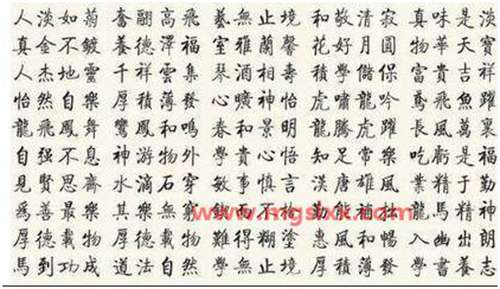 人淡如菊 奮翮高飛 藝無止境 和敬清寂 真味是淡
真金不鍍 養德澤福 室雅蘭馨 花好月圓 物華天寶
人杰地靈 千祥雲集 富貴吉祥
怡然自樂 厚積薄發 心曠神怡 虎嘯龍吟 鳶飛魚躍
龍飛鳳舞 鸞鳳和鳴 春和景明 龍騰虎躍 長風萬裏
自强不息 神游物外 知足常樂 吃虧是福
見賢思齊 水滴石穿 敏事慎言 漢唐雄風 業精于勤
爲善最樂 其樂無窮 勤能補拙 龍馬精神
厚德載物 厚德載物 難得糊塗 惠風和暢 入幽出朗
馬到功成 道法自然 學無止境 厚積薄發 學書養志